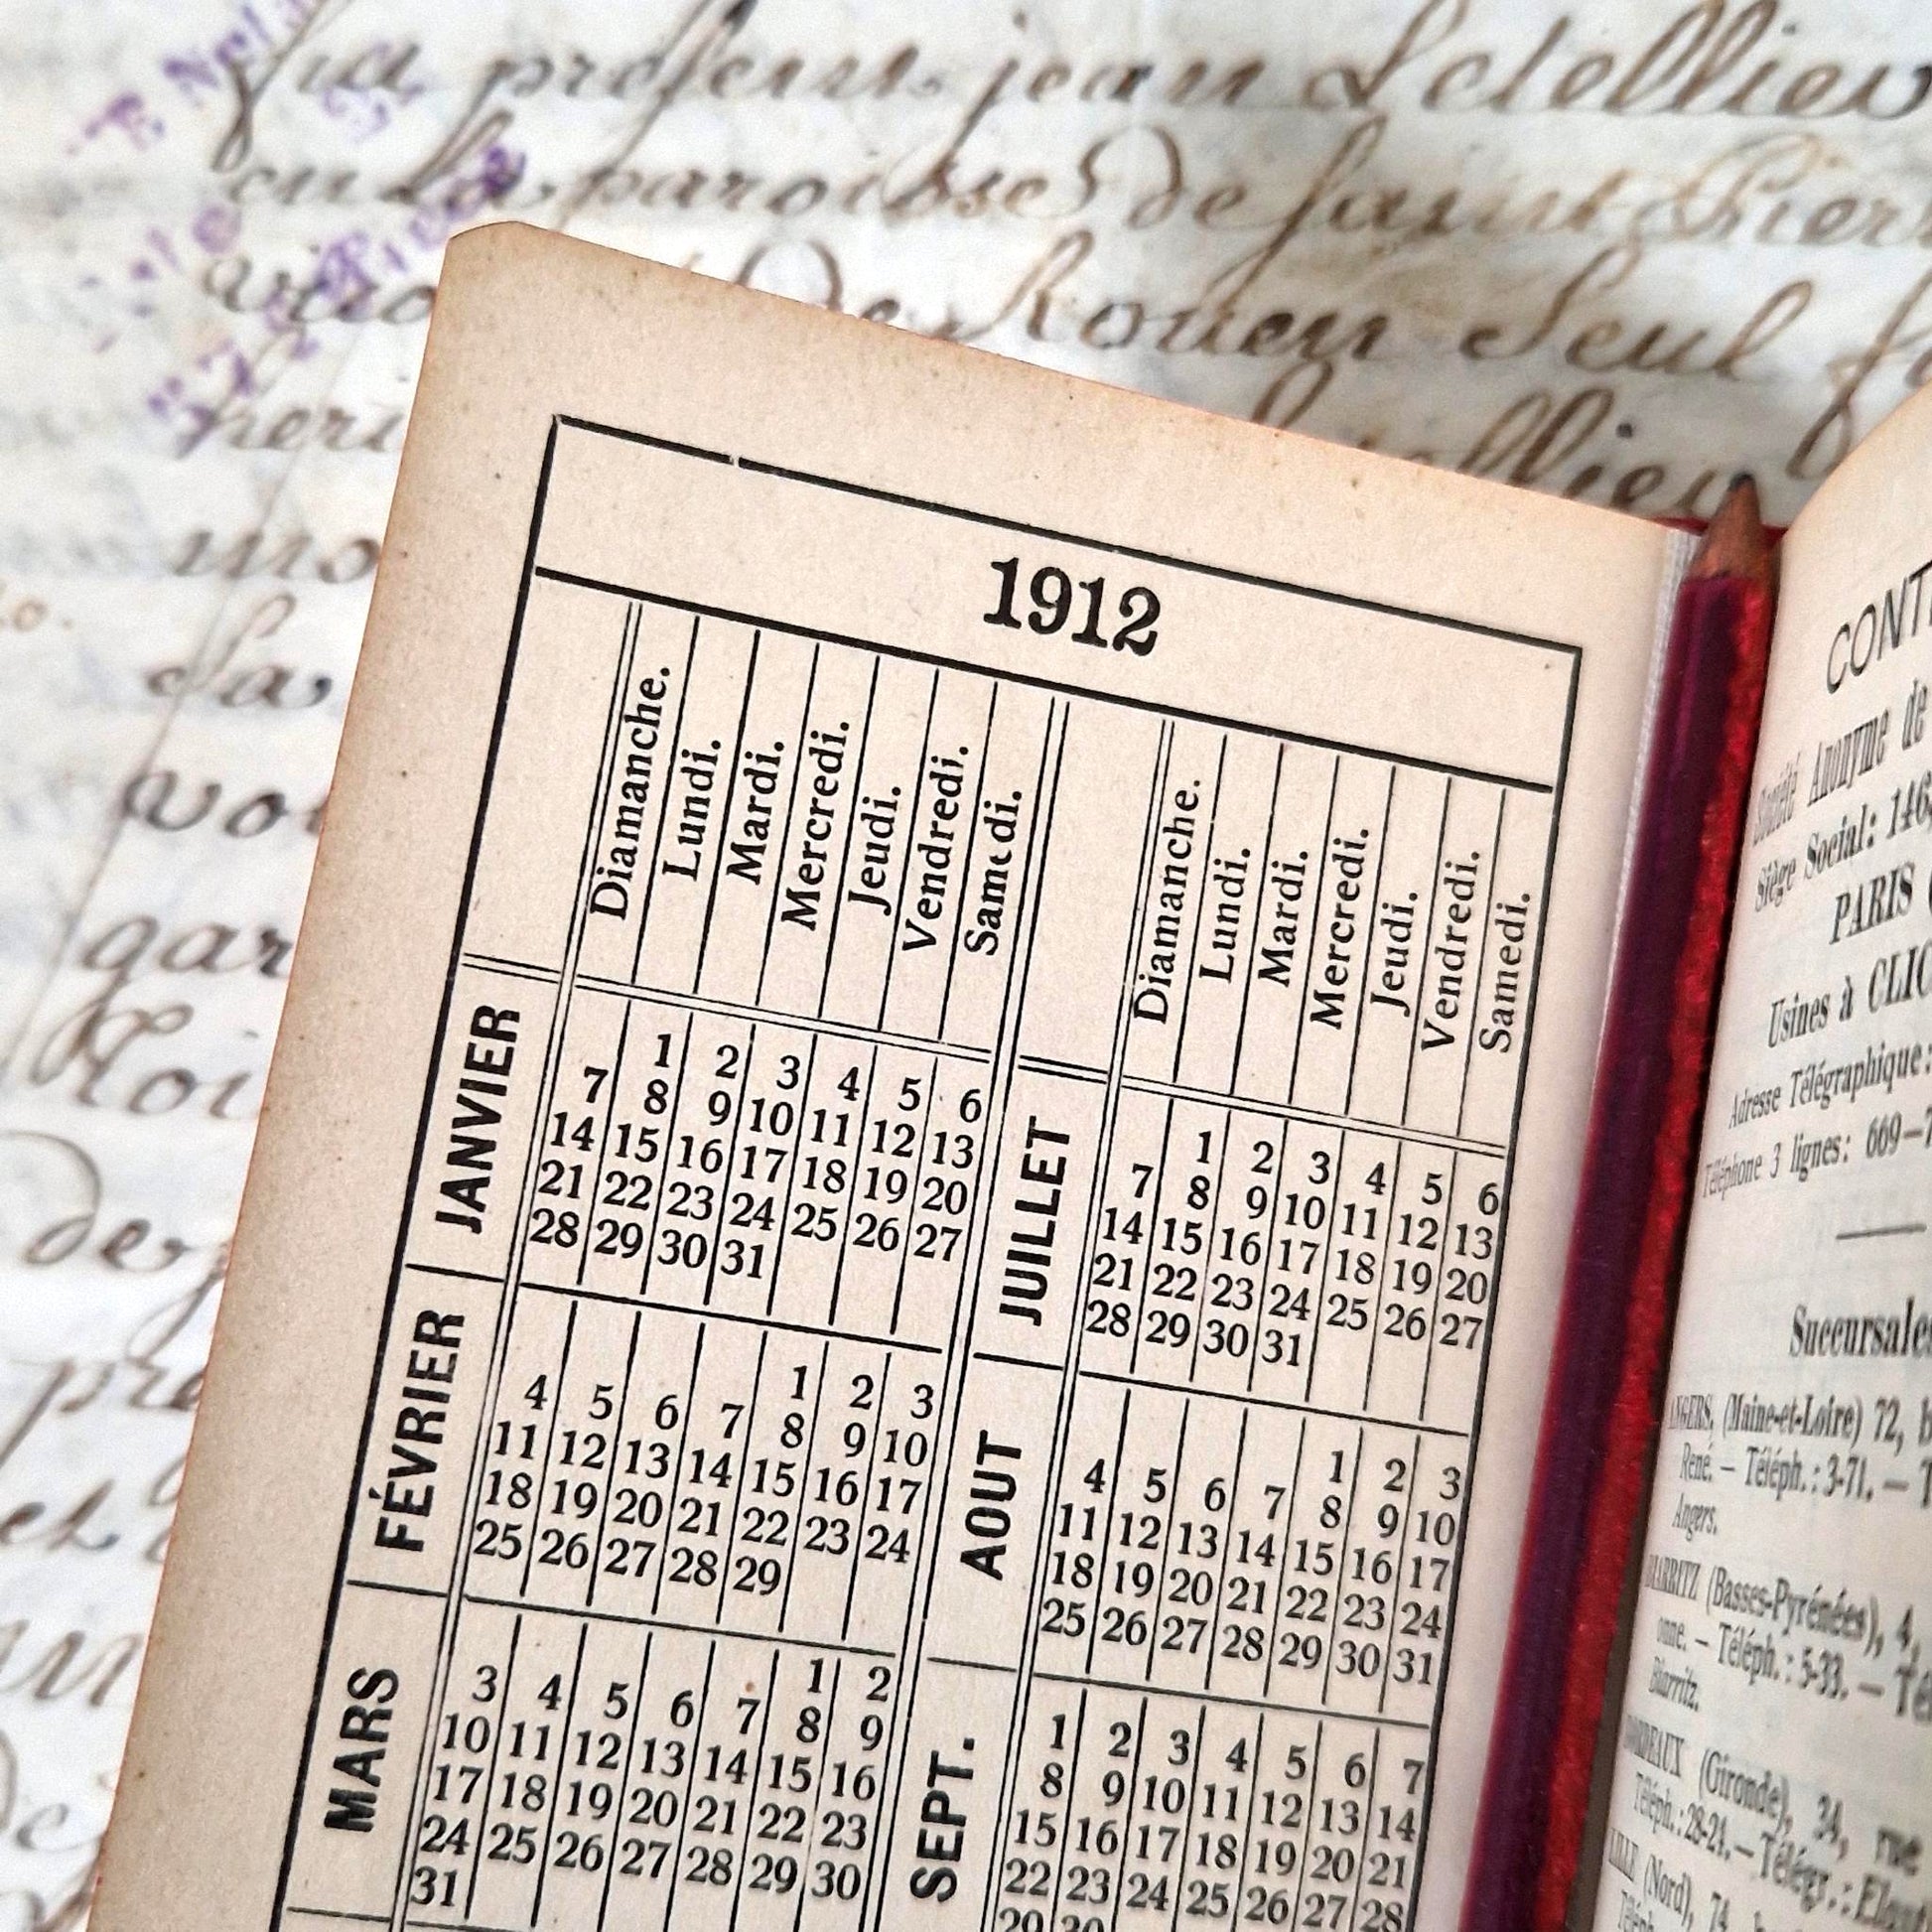 fut présent jean Letellier
en la paroisse de saint Pier
de Rouen Seul f
heri
Letellier
mo
la
vo
gar
loi
de
pr
et
1912
Diamanche. Lundi. Mardi. Mercredi. Jeudi. Vendredi. Samedi.
JANVIER
1 2 3 4 5 6
7 8 9 10 11 12 13
14 15 16 17 18 19 20
21 22 23 24 25 26 27
28 29 30 31
FÉVRIER
1 2 3
4 5 6 7 8 9 10
11 12 13 14 15 16 17
18 19 20 21 22 23 24
25 26 27 28 29
MARS
1 2
3 4 5 6 7 8 9
10 11 12 13 14 15 16
17 18 19 20 21 22 23
24 25 26 27 28 29 30
31
Diamanche. Lundi. Mardi. Mercredi. Jeudi. Vendredi. Samedi.
JUILLET
1 2 3 4 5 6
7 8 9 10 11 12 13
14 15 16 17 18 19 20
21 22 23 24 25 26 27
28 29 30 31
AOUT
1 2 3
4 5 6 7 8 9 10
11 12 13 14 15 16 17
18 19 20 21 22 23 24
25 26 27 28 29 30 31
SEPT.
1 2 3 4 5 6 7
8 9 10 11 12 13 14
15 16 17 18 19 20 21
22 23 24 25 26 27 28
29 30
CONT
Société Anonyme de
Siège Social: 146
PARIS (
Usines à CLIC
Adresse Télégraphique:
Téléphone 3 lignes: 669-7
Succursales
ANGERS, (Maine-et-Loire) 72, b
René. — Téléph.: 3-71. — T
Angers.
BIARRITZ (Basses-Pyrénées), 4,
onne. — Téléph.: 5-33. — Té
Biarritz.
BORDEAUX (Gironde), 34, rue
Téléph.: 28-24. — Télégr.: Elon
LILLE (Nord), 74,
Téléph.